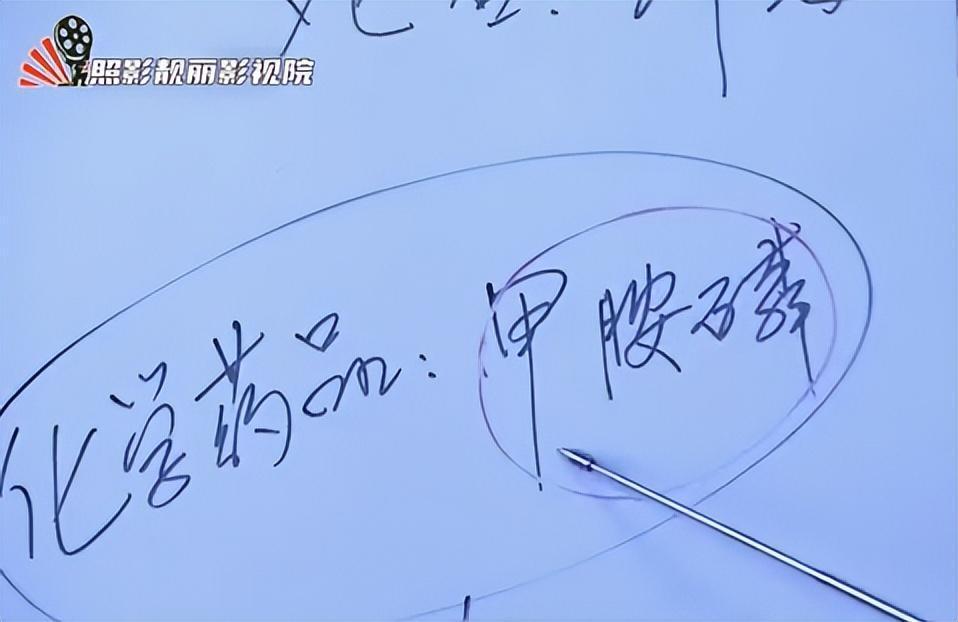 照影靓丽影视院
化学药品：甲胺磷